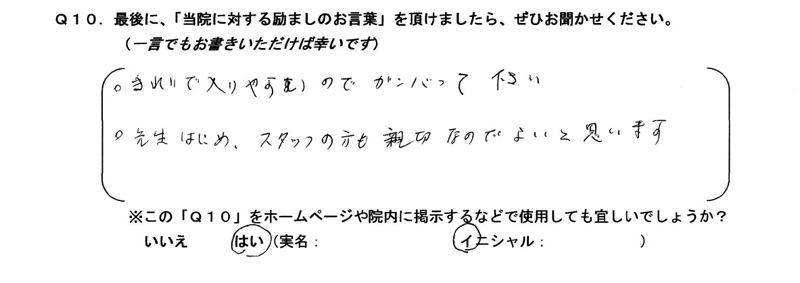 Q10．最後に、「当院に対する励ましのお言葉」を頂けましたら、ぜひお聞かせください。
（一言でもお書きいただけば幸いです）
。きれいで入りやすいので ガンバって 下さい
。先生はじめ、スタッフの方も 親切なのでよいと思います
※この「Q10」をホームページや院内に掲示するなどで使用しても宜しいでしょうか？
いいえ　はい（実名：　イニシャル：　）